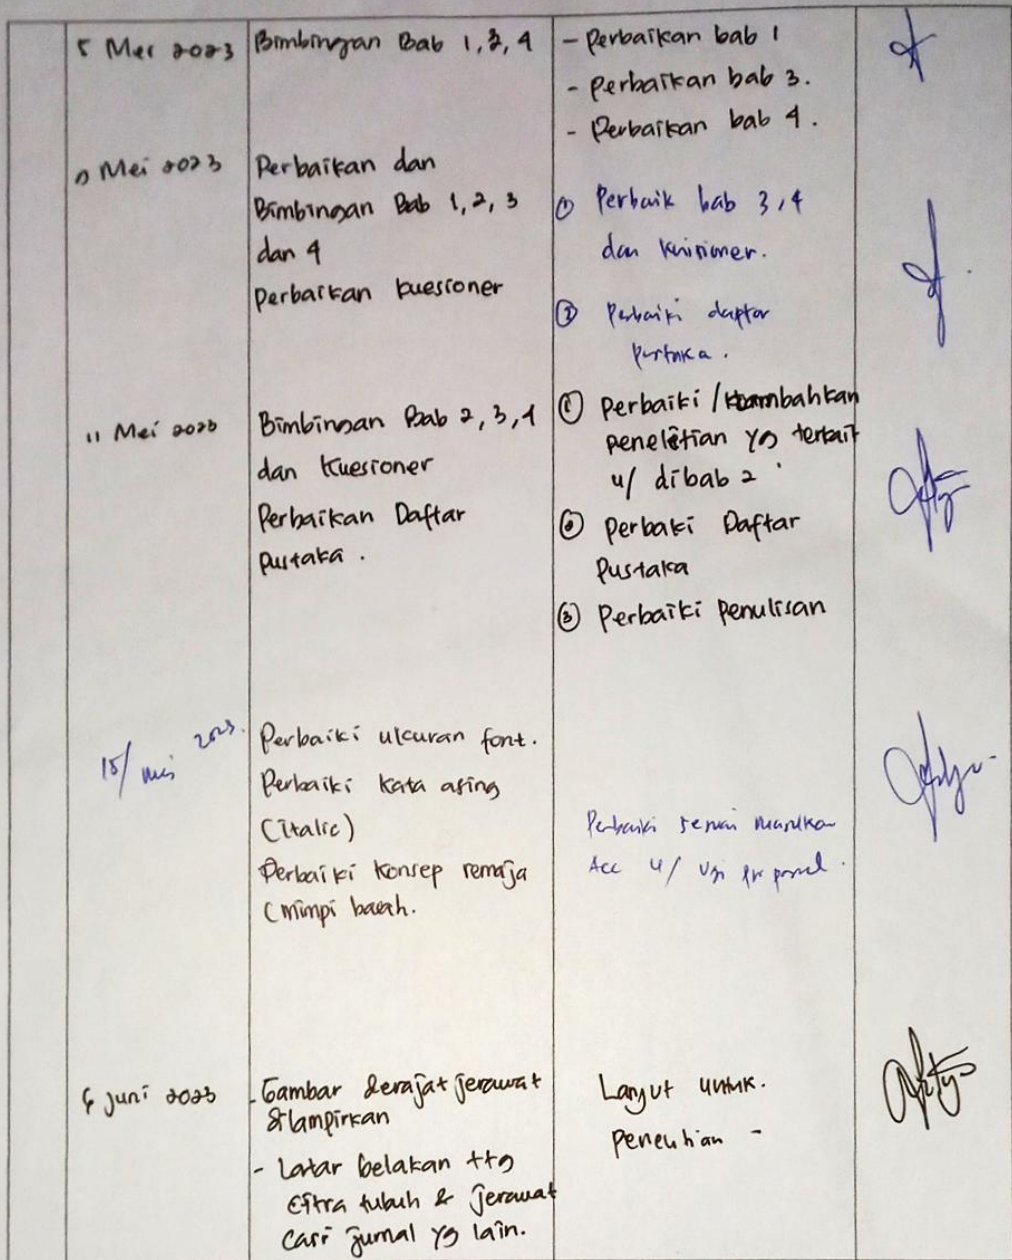 5 Mei 2023
Bimbingan Bab 1, 3, 4
- Perbaikan bab 1
- Perbaikan bab 3.
- Perbaikan bab 4.
Mei 2023
Perbaikan dan
Bimbingan Bab 1, 2, 3
dan 4
Perbaikan kuesioner
① Perbaik bab 3, 4
dan
② Perbaiki daptar
Pustaka.
11 Mei 2023
Bimbingan Bab 2, 3, 4
dan Kuesioner
Perbaikan Daftar
Pustaka.
① Perbaiki /tambahkan
penelitian yg terkait
u/ dibab 2
② Perbaki Daftar
Pustaka
③ Perbaiki Penulisan
15/ mei 2023.
Perbaiki ukuran font.
Perbaiki kata asing
(italic)
Perbaiki konsep remaja
(mimpi basah.
Perbaiki sesuai masukan
Acc u/ Uji proposal.
6 Juni 2023
- Gambar derajat jerawat
dilampirkan
- Latar belakan ttg
Citra tubuh & jerawat
cari jurnal yg lain.
Lanjut untuk.
penelitian -